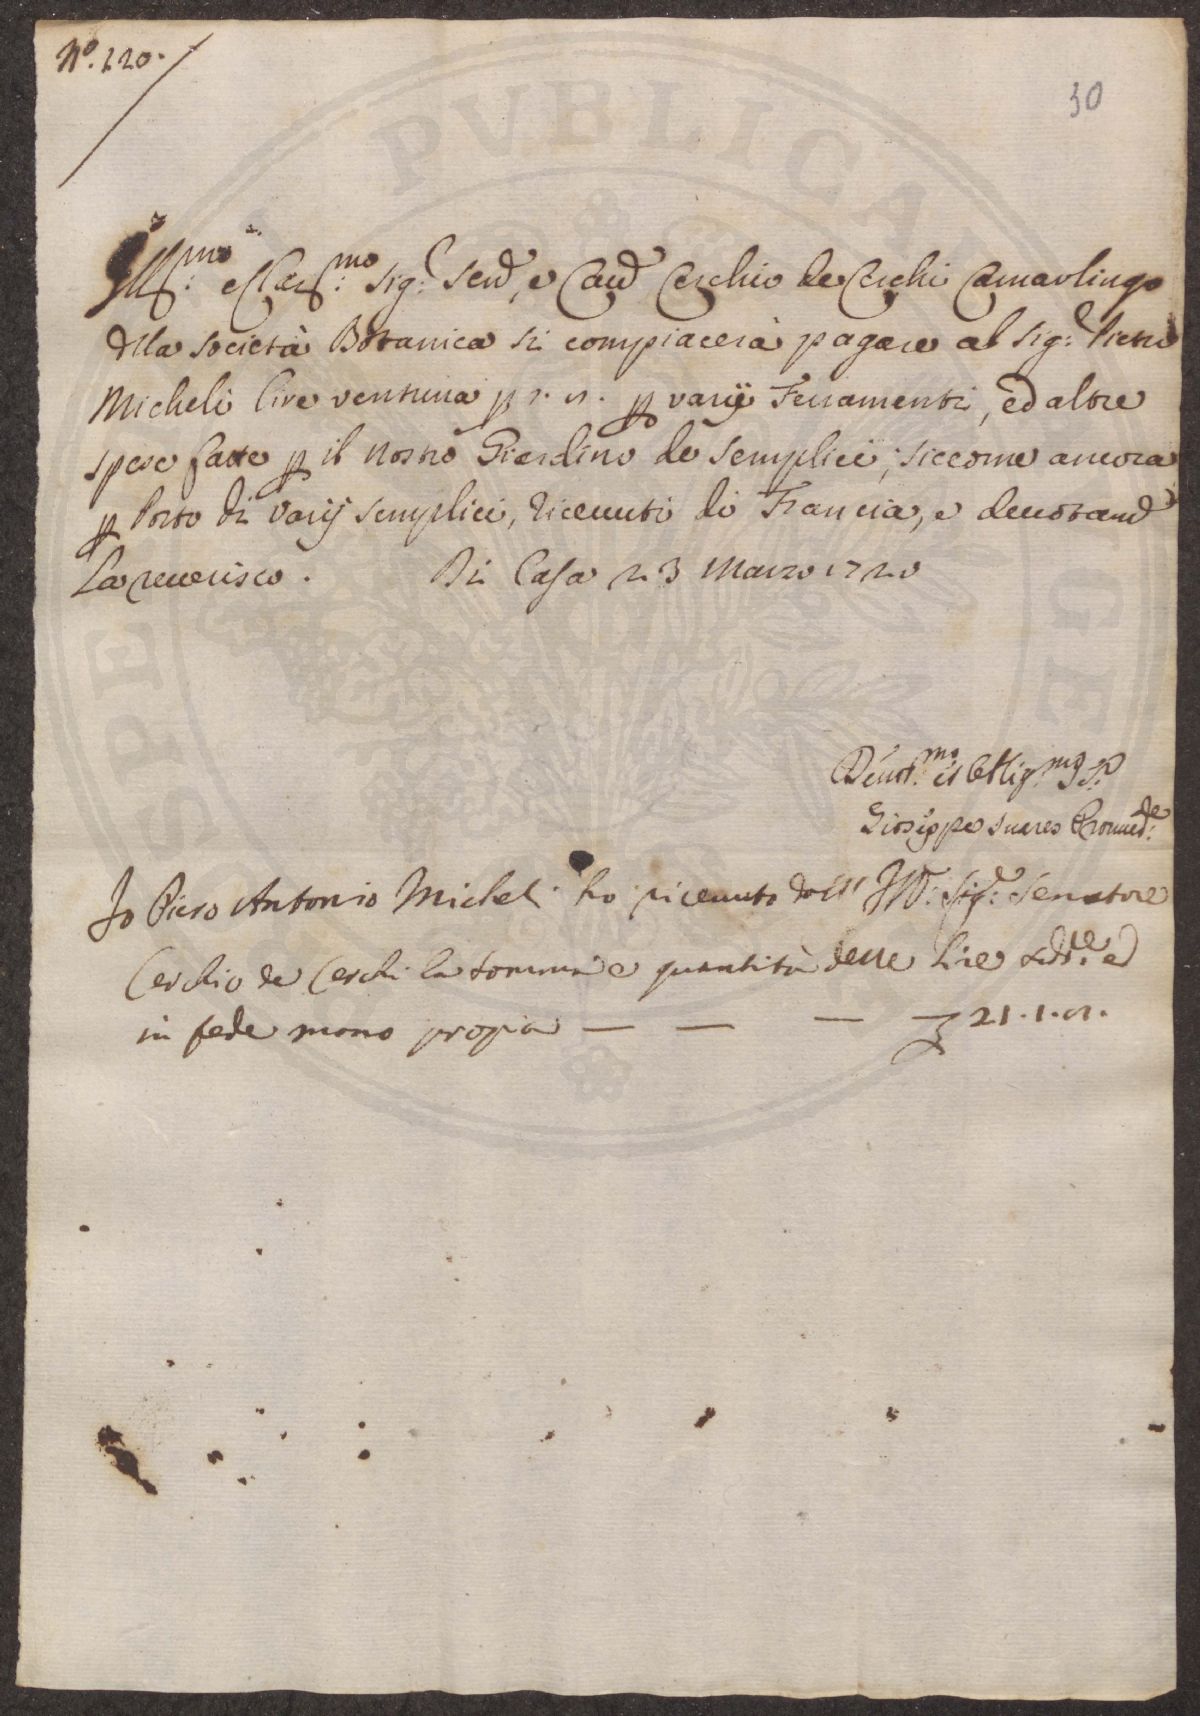 N.º 220.
30
Ill.mo e Clar.mo Sig.r Send, e Caud Cerchio de Cerchi Camarlingo
della società Botanica si compiacerà pagare al Sig.r Pietro
Micheli lire ventuna p varij Ferramenti, ed altre
spese fatte p il nostro Giardino de semplici; siccome ancora
p Porto di varij semplici, ricevuti di Francia, e devotamd
La reverisco. Di Casa 23 Marzo 1720
Devot.mo et Obblig.mo S.
Gioseppe Suares Provved.re
Io Piero Antonio Micheli ho ricevuto dall' Ill.: Sig.r: Senatore
Cerchio de Cerchi la somma e quantità delle Lire sud.te ed
in fede mano propia — — — 21.1.